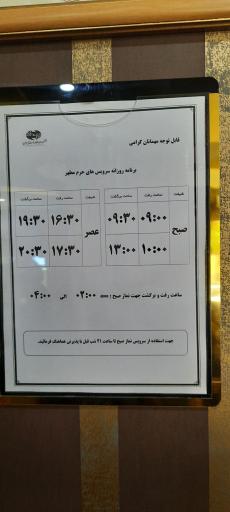 قابل توجه مهمانان گرامی
برنامه روزانه سرویس های حرم مطهر
شیفت ساعت رفت ساعت برگشت شیفت ساعت رفت ساعت برگشت
صبح ۰۹:۰۰ ۰۹:۳۰ عصر ۱۶:۳۰ ۱۹:۳۰
۱۰:۰۰ ۱۳:۰۰ ۱۷:۳۰ ۲۰:۳۰
ساعت رفت و برگشت جهت نماز صبح : ۰۲:۰۰ الی ۰۴:۰۰
جهت استفاده از سرویس نماز صبح تا ساعت ۲۱ شب قبل با پذیرش هماهنگ فرمائید.